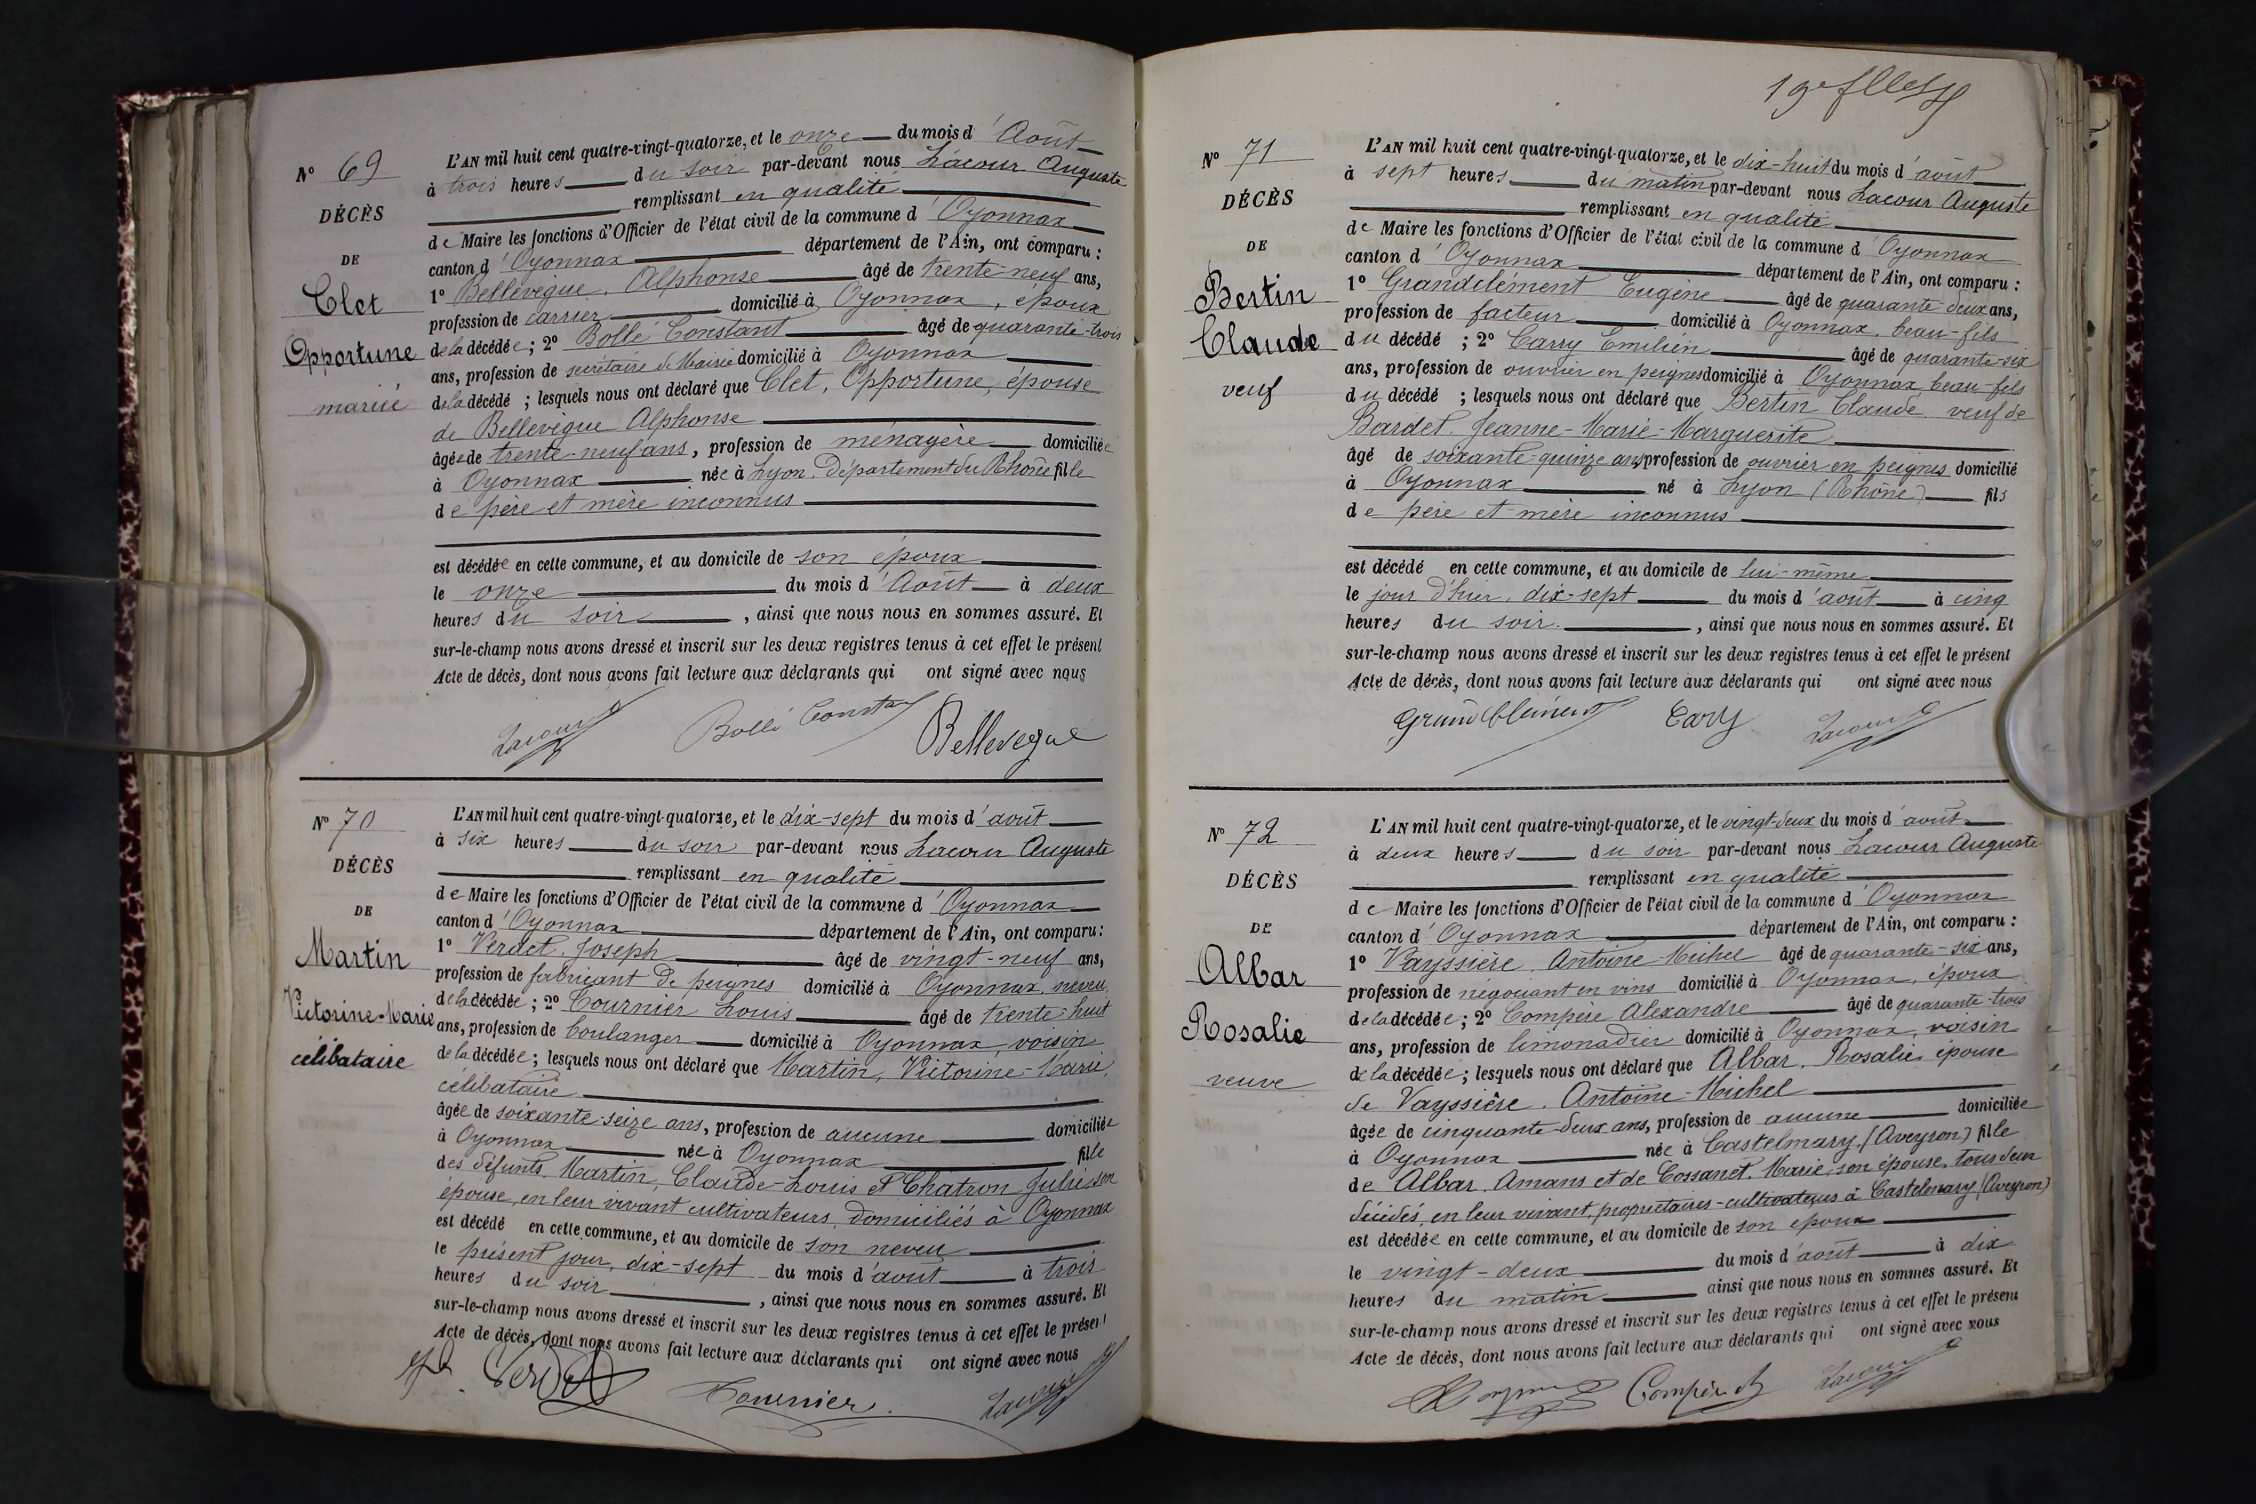 N° 69
DÉCÈS
DE
Clet
Opportune
mariée
L'AN mil huit cent quatre-vingt-quatorze, et le onze du mois d'Août
à trois heures du soir par-devant nous Lacour Auguste
remplissant en qualité
de Maire les fonctions d'Officier de l'état civil de la commune d'Oyonnax
canton d'Oyonnax département de l'Ain, ont comparu :
1° Bellevègue, Alphonse âgé de trente neuf ans,
profession de carrier domicilié à Oyonnax, époux
de la décédée ; 2° Bollé Constant âgé de quarante-trois
ans, profession de secrétaire de Mairie domicilié à Oyonnax
de la décédé ; lesquels nous ont déclaré que Clet, Opportune, épouse
de Bellevègue Alphonse
âgée de trente-neuf ans, profession de ménagère domiciliée
à Oyonnax née à Lyon, Département du Rhône fille
de père et mère inconnus
est décédée en cette commune, et au domicile de son époux
le onze du mois d'Août à deux
heures du soir, ainsi que nous nous en sommes assuré. Et
sur-le-champ nous avons dressé et inscrit sur les deux registres tenus à cet effet le présent
Acte de décès, dont nous avons fait lecture aux déclarants qui ont signé avec nous
Lacour Bollé Constant Bellevegue
N° 70
DÉCÈS
DE
Martin
Victorine-Marie
célibataire
L'AN mil huit cent quatre-vingt-quatorze, et le dix-sept du mois d'août
à six heures du soir par-devant nous Lacour Auguste
remplissant en qualité
de Maire les fonctions d'Officier de l'état civil de la commune d'Oyonnax
canton d'Oyonnax département de l'Ain, ont comparu :
1° Verdet, Joseph âgé de vingt-neuf ans,
profession de fabricant de peignes domicilié à Oyonnax, neveu
de la décédée ; 2° Tournier Louis âgé de trente-huit
ans, profession de boulanger domicilié à Oyonnax, voisin
de la décédée ; lesquels nous ont déclaré que Martin, Victorine-Marie,
célibataire
âgée de soixante-seize ans, profession de aucune domiciliée
à Oyonnax née à Oyonnax fille
des défunts Martin, Claude-Louis et Chatron Julie, son
épouse, en leur vivant cultivateurs, domiciliés à Oyonnax
est décédé en cette commune, et au domicile de son neveu
le présent jour, dix-sept du mois d'août à trois
heures du soir, ainsi que nous nous en sommes assuré. Et
sur-le-champ nous avons dressé et inscrit sur les deux registres tenus à cet effet le présent
Acte de décès, dont nous avons fait lecture aux déclarants qui ont signé avec nous
Verdet Tournier Lacour
N° 71
DÉCÈS
DE
Bertin
Claude
veuf
L'AN mil huit cent quatre-vingt-quatorze, et le dix-huit du mois d'août
à sept heures du matin par-devant nous Lacour Auguste
remplissant en qualité
de Maire les fonctions d'Officier de l'état civil de la commune d'Oyonnax
canton d'Oyonnax département de l'Ain, ont comparu :
1° Grandclément Eugène âgé de quarante-deux ans,
profession de facteur domicilié à Oyonnax, beau-fils
du décédé ; 2° Carry Emilien âgé de quarante-six
ans, profession de ouvrier en peignes domicilié à Oyonnax beau-fils
du décédé ; lesquels nous ont déclaré que Bertin Claude veuf de
Bardet Jeanne-Marie-Marguerite
âgé de soixante-quinze ans, profession de ouvrier en peignes domicilié
à Oyonnax né à Lyon (Rhône) fils
de père et mère inconnus
est décédé en cette commune, et au domicile de lui-même
le jour d'hier, dix-sept du mois d'août à cinq
heures du soir, ainsi que nous nous en sommes assuré. Et
sur-le-champ nous avons dressé et inscrit sur les deux registres tenus à cet effet le présent
Acte de décès, dont nous avons fait lecture aux déclarants qui ont signé avec nous
Grandclément Cary Lacour
N° 72
DÉCÈS
DE
Albar
Rosalie
veuve
L'AN mil huit cent quatre-vingt-quatorze, et le vingt-deux du mois d'août
à deux heures du soir par-devant nous Lacour Auguste
remplissant en qualité
de Maire les fonctions d'Officier de l'état civil de la commune d'Oyonnax
canton d'Oyonnax département de l'Ain, ont comparu :
1° Vayssière, Antoine-Michel âgé de quarante-six ans,
profession de négociant en vins domicilié à Oyonnax, époux
de la décédée ; 2° Compère Alexandre âgé de quarante-trois
ans, profession de limonadier domicilié à Oyonnax, voisin
de la décédée ; lesquels nous ont déclaré que Albar, Rosalie, épouse
de Vayssière, Antoine-Michel
âgée de cinquante-deux ans, profession de aucune domiciliée
à Oyonnax née à Castelmary (Aveyron) fille
de Albar, Amans et de Cossanet, Marie, son épouse, tous deux
décédés, en leur vivant, propriétaires-cultivateurs à Castelmary (Aveyron)
est décédée en cette commune, et au domicile de son époux
le vingt-deux du mois d'août à dix
heures du matin ainsi que nous nous en sommes assuré. Et
sur-le-champ nous avons dressé et inscrit sur les deux registres tenus à cet effet le présent
Acte de décès, dont nous avons fait lecture aux déclarants qui ont signé avec nous
Compère Lacour